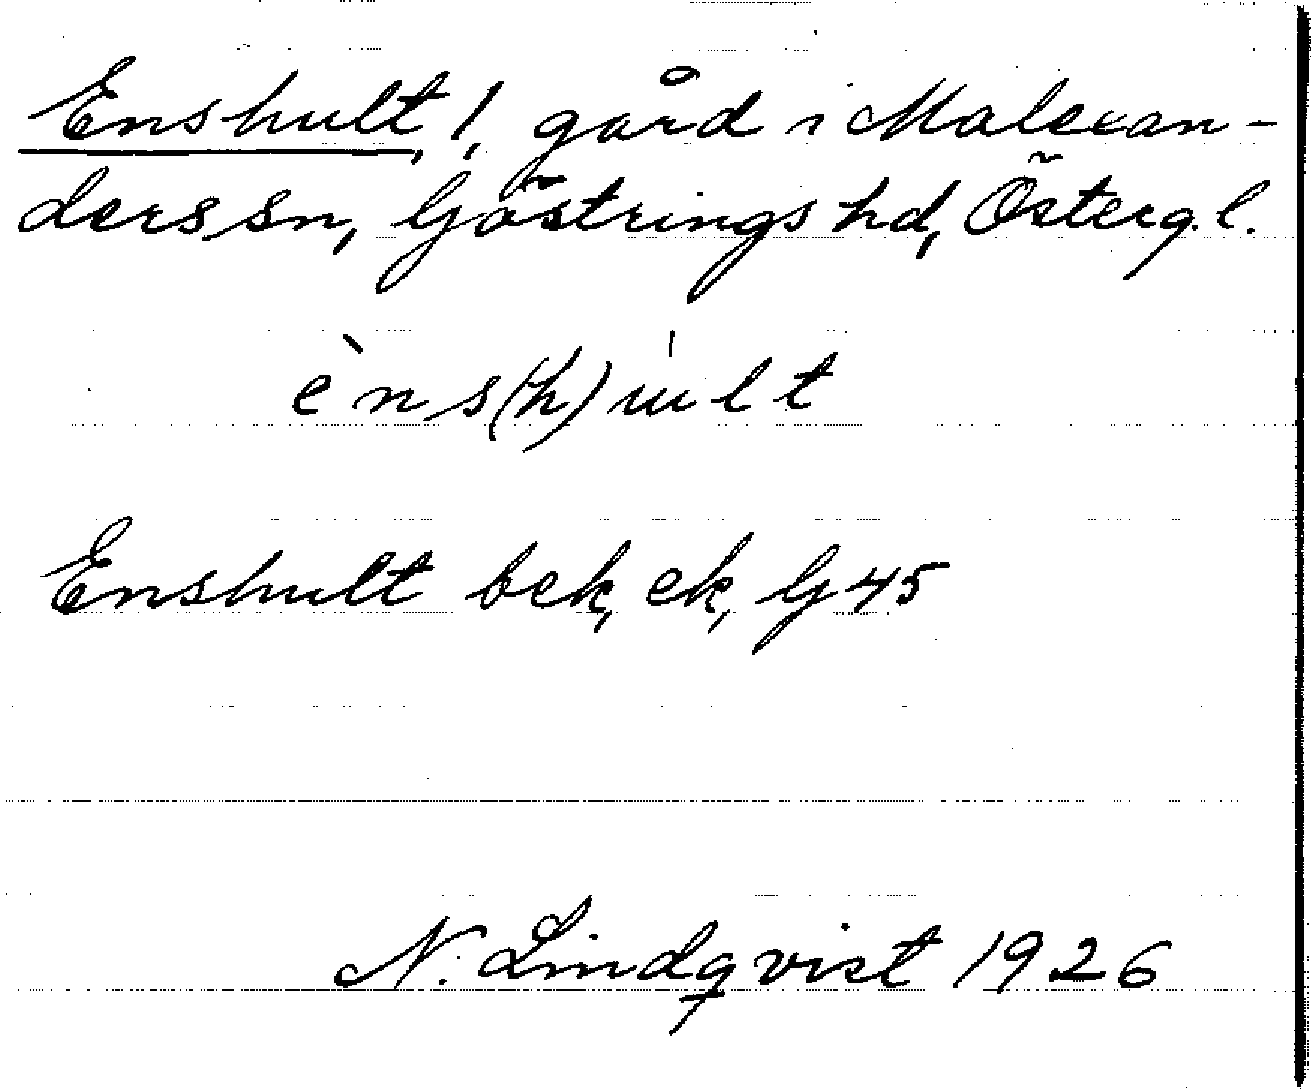 Enshult, 1, gård i Malexan-
ders sn, Göstrings hd, Österg. l.
èns(h)ult
Enshult bek, ek, G 45
N. Lindqvist 1926